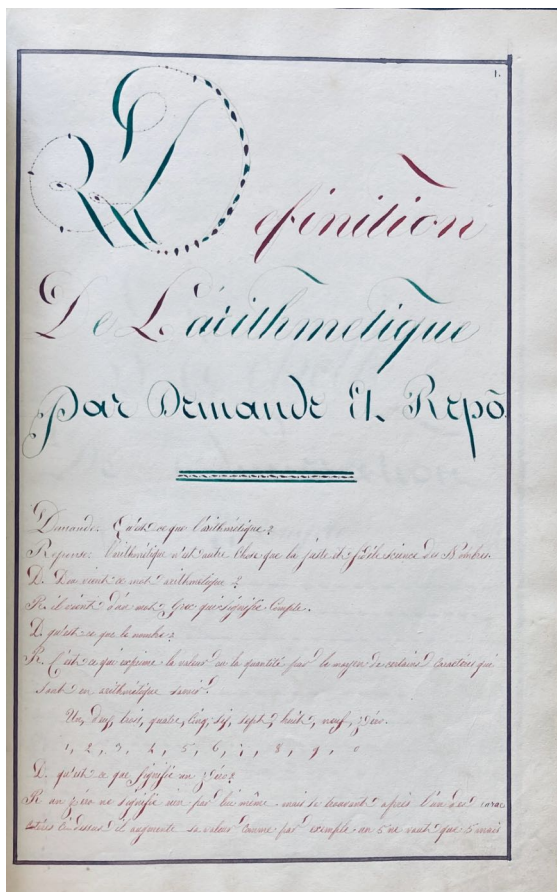 1.
Definition
De L'arithmetique
par Demande Et Repõ
Demande: Qu'est ce que l'arithmétique?
Reponse: l'arithmétique n'est autre Chose que la juste et facile science des Nombres.
D. D'ou vient ce mot arithmetique?
R. il vient d'un mot Grec qui signifie Compte.
D. qu'est ce que le nombre?
R. C'est ce qui exprime la valeur ou la quantité par le moyen de certains Caractéres qui
sont en arithmétique savoir.
Un, deux, trois, quatre, Cinq, six, sept, huit, neuf, zéro.
1, 2, 3, 4, 5, 6, 7, 8, 9, 0
D. qu'est ce que signifie un zéro?
R un zéro ne signifie rien par lui même mais se trouvant après l'un des carac
téres Ci-dessus il augmente sa valeur Comme par exemple un 5 ne vaut que 5 mais